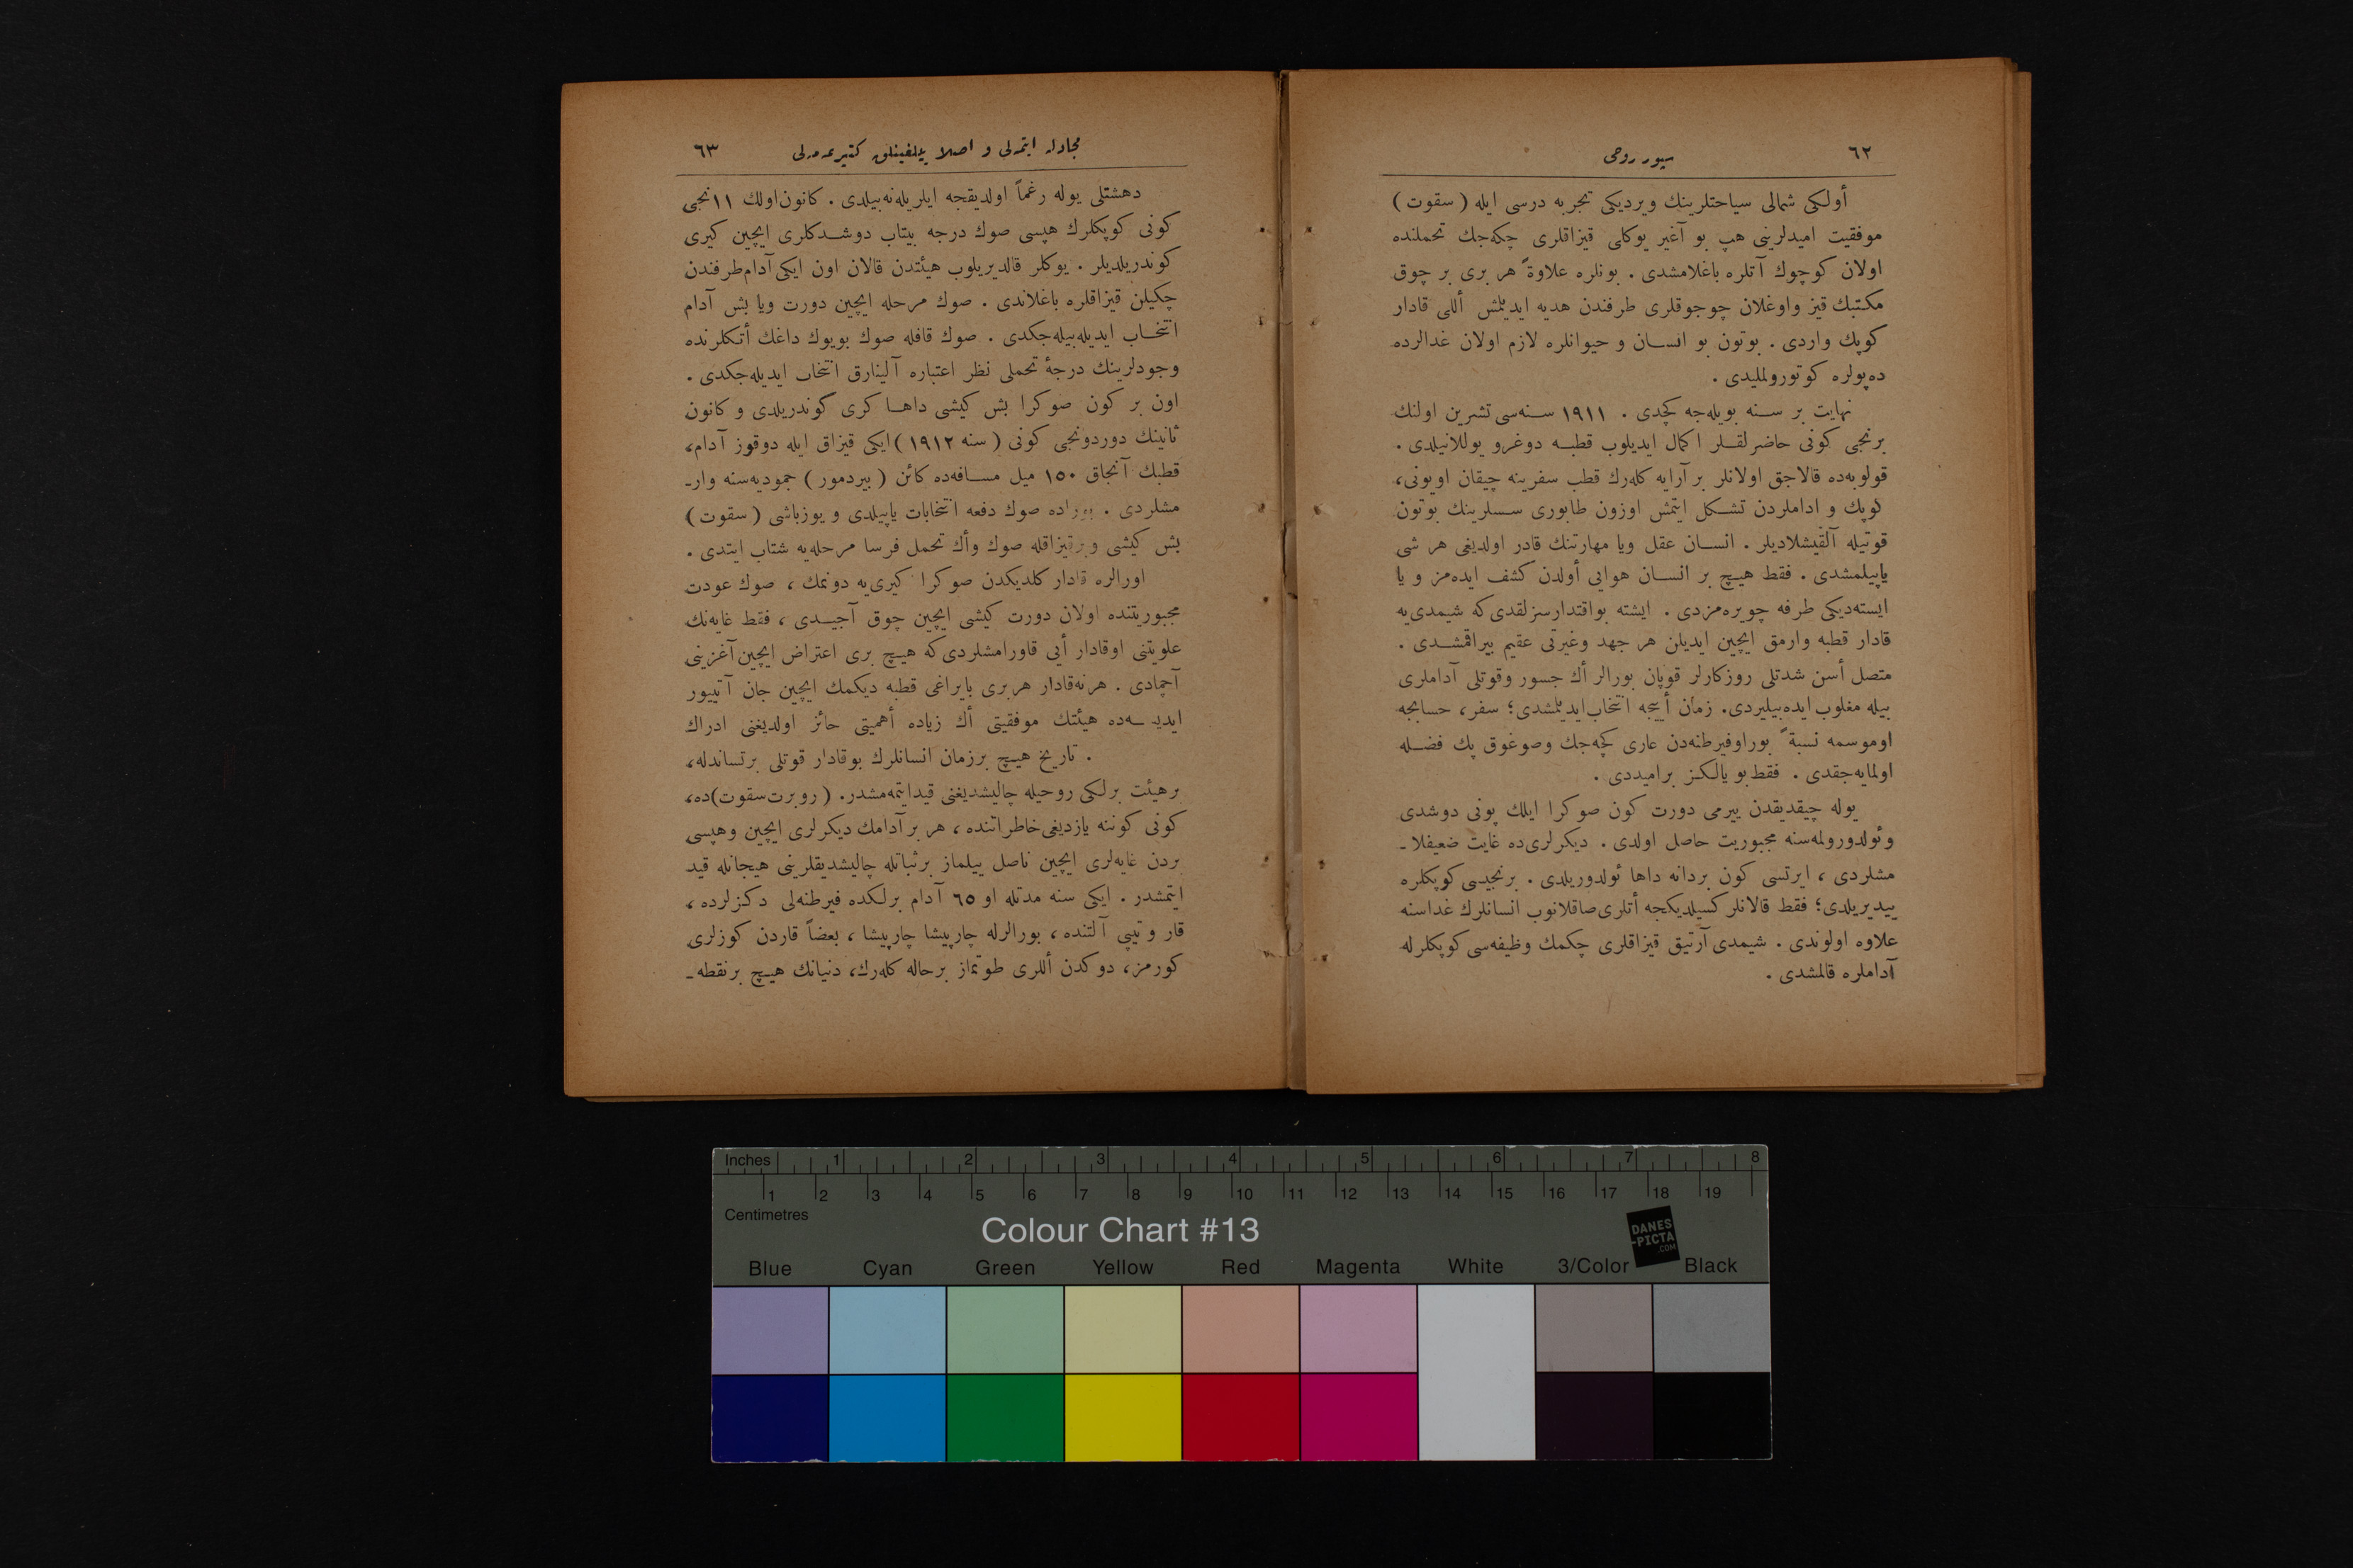 ٦٢
سپور روحى
أولكى شمالى سياحتلرينك ويرديكى تجربه درسى ايله ( سقوت )
موفقيت اميدلرينى هپ بو آغير يوكلى قيزاقلرى چكه‌جك تحملنده
اولان كوچوك آتلره باغلامشدى . بونلره علاوةً هر برى بر چوق
مكتبك قيز واوغلان چوجوقلرى طرفندن هديه ايديلمش أللى قادار
كوپك واردى . بوتون بو انسان و حيوانلره لازم اولان غدالرده
ده‌پولره كوتورولمليدى .
نهايت بر سنه بويله‌جه كچدى . ١٩١١ سنه‌سى تشرين اولنك
برنجى كونى حاضرلقلر اكمال ايديلوب قطبه دوغرو يوللانيلدى .
قولوبه‌ده قالاجق اولانلر بر آرايه كله‌رك قطب سفرينه چيقان اويونى،
كوپك و اداملردن تشكل ايتمش اوزون طابورى سسلرينك بوتون
قوتيله آلقيشلاديلر . انسان عقل ويا مهارتنك قادر اولديغى هر شى
ياپيلمشدى . فقط هيچ بر انسان هوايى أولدن كشف ايده‌مز و يا
ايسته‌ديكى طرفه چويره‌مزدى . ايشته بواقتدارسزلقدى كه شيمدى‌يه
قادار قطبه وارمق ايچين ايديلن هر جهد وغيرتى عقيم بيراقمشدى .
متصل أسن شدتلى روزكارلر قوپان بورالر أك جسور وقوتلى آداملرى
بيله مغلوب ايده‌بيليردى. زمان أييجه انتخاب‌ايديلمشدى؛ سفر، حسابجه
اوموسمه نسبةً بوراوفيرطنه‌دن عارى كچه‌جك وصوغوق پك فضله
اولمايه‌جقدى . فقط بو يالكز براميددى .
يوله چيقديقدن ييرمى دورت كون صوكرا ايلك پونى دوشدى
وئولدورولمه‌سنه مجبوريت حاصل اولدى . ديكرلرى‌ده غايت ضعيفلا ـ
مشلردى ، ايرتسى كون بردانه داها ئولدوريلدى . برنجيسى كوپكلره
ييديريلدى؛ فقط قالانلر كسيلديكجه أتلرى‌صاقلانوب انسانلرك غداسنه
علاوه اولوندى . شيمدى آرتيق قيزاقلرى چكمك وظيفه‌سى كوپكلرله
آداملره قالمشدى .
مجادله ايتمه‌لى و اصلا ييلغينلق كتيرمه‌مه‌لى
٦٣
دهشتلى يوله رغماً اولديقجه ايلريله‌نه‌بيلدى . كانون‌اولك ١١نجى
كونى كوپكلرك هپسى صوك درجه بيتاب دوشدكلرى ايچين كيرى
كوندريلديلر . يوكلر قالديريلوب هيئتدن قالان اون ايكى آدام‌طرفندن
چكيلن قيزاقلره باغلاندى . صوك مرحله ايچين دورت ويا بش آدام
انتخاب ايديله‌بيله‌جكدى . صوك قافله صوك بويوك داغك أتكلرنده
وجودلرينك درجۀ تحملى نظر اعتباره آلينارق انتخاب ايديله‌جكدى .
اون بر كون صوكرا بش كيشى داها كرى كوندريلدى و كانون
ثانينك دوردونجى كونى ( سنه ١٩١٢ ) ايكى قيزاق ايله دوقوز آدام،
قطبك آنجاق ١٥٠ ميل مسافه‌ده كائن ( بيردمور ) جموديه‌سنه وار ـ
مشلردى . بوراده صوك دفعه انتخابات ياپيلدى و يوزباشى ( سقوت )
بش كيشى وبرقيزاقله صوك وأك تحمل فرسا مرحله‌يه شتاب ايتدى .
اورالره قادار كلديكدن صوكرا كيرى‌يه دونمك ، صوك عودت
مجبوريتنده اولان دورت كيشى ايچين چوق آجيدى ، فقط غايه‌نك
علويتنى اوقادار أيى قاورامشلردى كه هيچ برى اعتراض ايچين آغزينى
آچمادى . هرنه‌قادار هربرى بايراغى قطبه ديكمك ايچين جان آتييور
هيئتك موفقيتى أك زياده أهميتى حائز اولديغنى ادراك
. تاريخ هيچ برزمان انسانلرك بوقادار قوتلى برتساندله،
برهيئت برلكى روحيله چاليشديغنى قيدايتمه‌مشدر. ( روبرت‌سقوت)ده،
كونى كوننه يازديغى‌خاطراتنده ، هر برآدامك ديكرلرى ايچين وهپسى
بردن غايه‌لرى ايچين ناصل ييلماز برثباتله چاليشديقلرينى هيجانله قيد
ايتمشدر . ايكى سنه مدتله او ٦٥ آدام برلكده فيرطنه‌لى دكزلرده ،
قار و تيپى آلتنده ، بورالرله چارپيشا چارپيشا ، بعضاً قاردن كوزلرى
كورمز، دوكدن أللرى طوتماز برحاله كله‌رك، دنيانك هيچ برنقطه ـ
Inches 1 2 3 4 5 6 7 8
1 2 3 4 5 6 7 8 9 10 11 12 13 14 15 16 17 18 19
Centimetres
Colour Chart #13
DANES
-PICTA
.COM
Blue Cyan Green Yellow Red Magenta White 3/Color Black